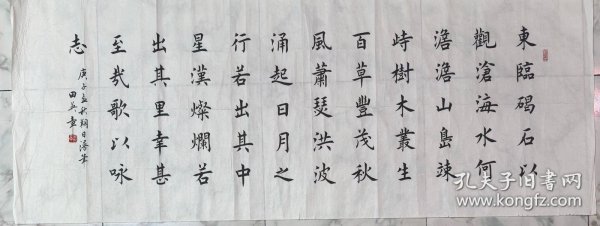 東臨碣石以
觀滄海水何
澹澹山島竦
峙樹木叢生
百草豐茂秋
風蕭瑟洪波
涌起日月之
行若出其中
星漢燦爛若
出其里幸甚
至哉歌以咏
志
庚子孟秋
田英書
孔夫子旧书网
www.kongfz.com